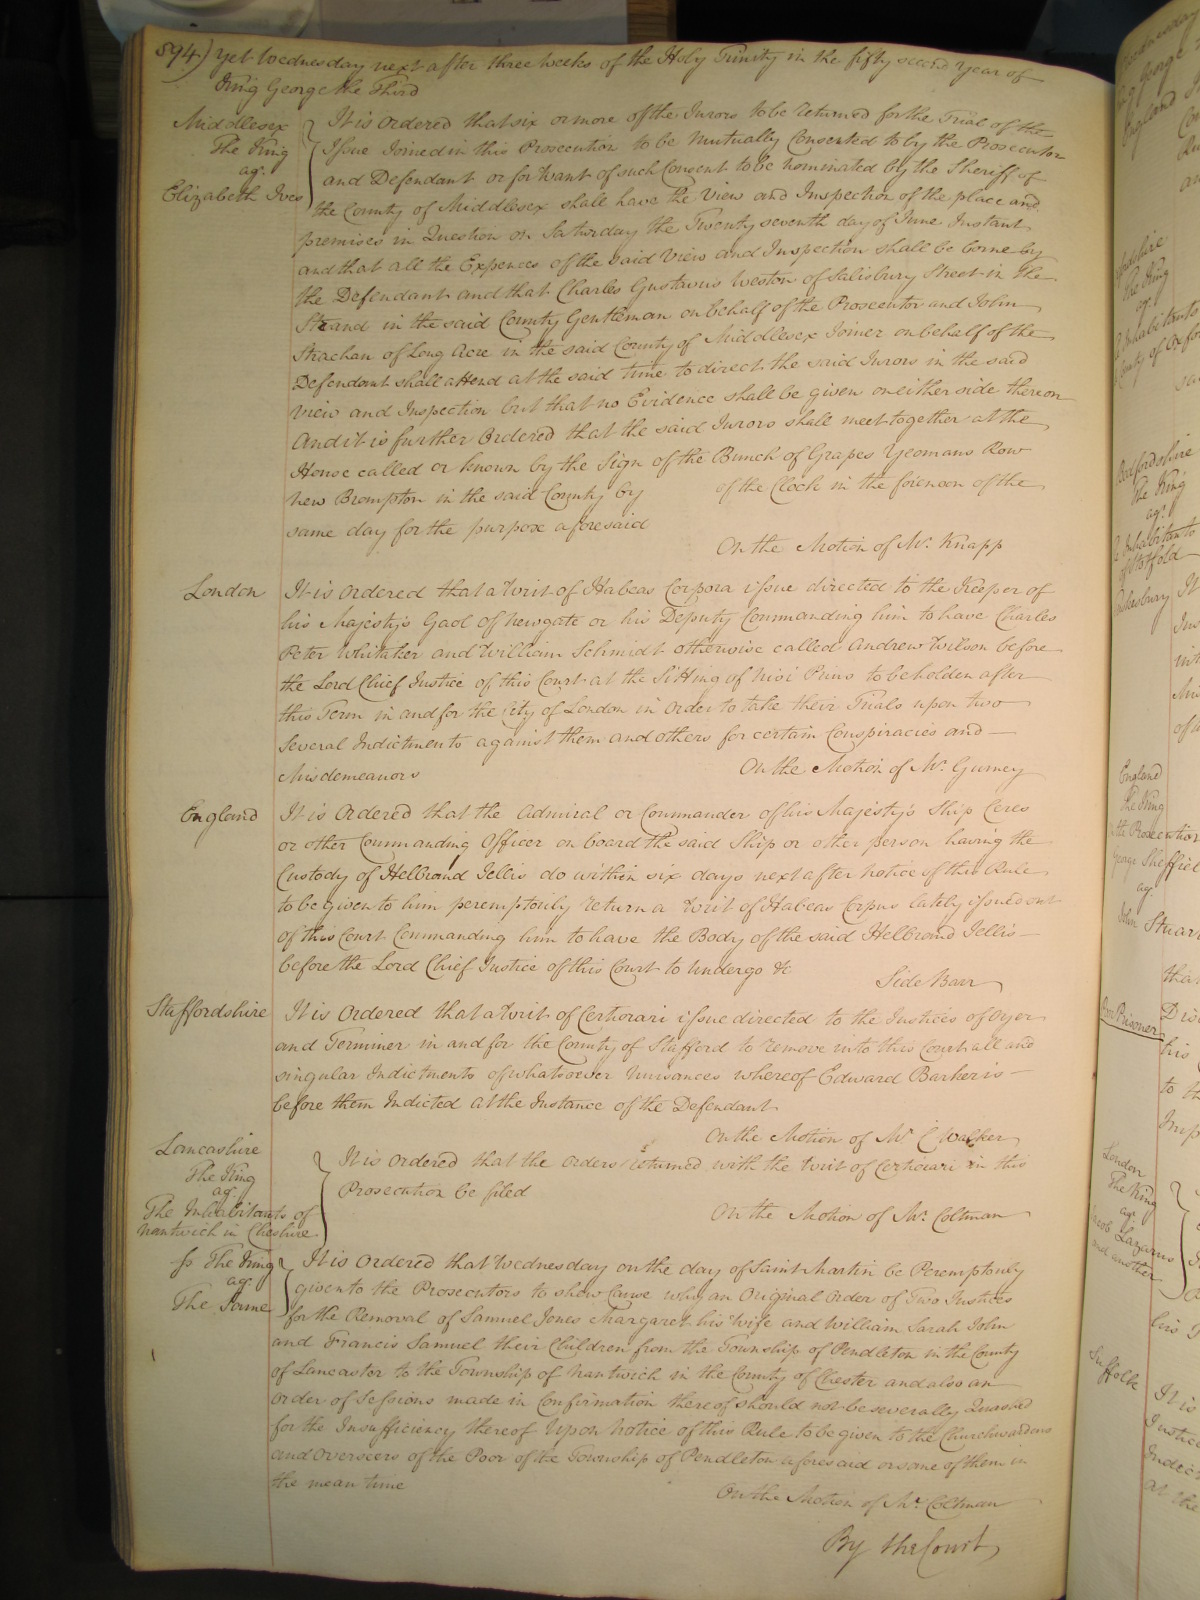 594) Yet Wednesday next after three weeks of the Holy Trinity in the fifty second Year of
King George the Third
Middlesex
The King
agt.
Elizabeth Ives
It is ordered that six or more of the Jurors to be returned for the Trial of the
Issue Joined in this Prosecution to be Mutually Consented to by the Prosecutor
and Defendant or for want of such Consent to be nominated by the Sheriff of
the County of Middlesex shall have the View and Inspection of the place and
premises in Question on Saturday the Twenty seventh day of June Instant
and that all the Expences of the said View and Inspection shall be borne by
the Defendant and that Charles Gustavus Weston of Salisbury Street in the
Strand in the said County Gentleman on behalf of the Prosecutor and John
Strachan of Long Acre in the said County of Middlesex Joiner on behalf of the
Defendant shall attend at the said time to direct the said Jurors in the said
view and Inspection but that no Evidence shall be given on either side thereon
And it is further Ordered that the said Jurors shall meet together at the
House called or known by the Sign of the Bunch of Grapes Yeomans Row
New Brompton in the said County by of the Clock in the forenoon of the
same day for the purpose aforesaid
On the Motion of Mr. Knapp
London
It is ordered that a Writ of Habeas Corpora issue directed to the Keeper of
his Majesty's Gaol of Newgate or his Deputy Commanding him to have Charles
Peter Whitaker and William Schmidt otherwise called Andrew Wilson before
the Lord Chief Justice of this Court at the Sitting of Nisi Prius to be holden after
this Term in and for the City of London in order to take their Trials upon two
several Indictments against them and others for certain Conspiracies and
Misdemeanors On the Motion of Mr. Gurney
England
It is Ordered that the Admiral or Commander of his Majesty's Ship Ceres
or other Commanding Officer on board the said Ship or other person having the
Custody of Helbrand Jellis do within six days next after Notice of this Rule
to be given to him peremptorily return a Writ of Habeas Corpus lately issued out
of this Court Commanding him to have the Body of the said Helbrand Jellis
before the Lord Chief Justice of this Court to Undergo &c Side Barr
Staffordshire
It is Ordered that a Writ of Certiorari issue directed to the Justices of Oyer
and Terminer in and for the County of Stafford to remove into this Court all and
singular Indictments of whatsoever Nuisances whereof Edward Barker is
before them Indicted at the Instance of the Defendant
On the Motion of Mr C Walker
Lancashire
The King
agt.
The Inhabitants of
Nantwich in Cheshire
It is ordered that the orders returned with the Writ of Certiorari in this
Prosecution be filed
On the Motion of Mr. Coltman
Ss The King
agt.
The Same
It is Ordered that Wednesday on the day of Saint Martin be Peremptorily
given to the Prosecutors to show Cause why an Original Order of Two Justices
for the Removal of Samuel Jones Margaret his Wife and William Sarah John
and Francis Samuel their Children from the Township of Pendleton in the County
of Lancaster to the Township of Nantwich in the County of Chester and also an
order of Sessions made in Confirmation thereof should not be severally Quashed
for the Insufficiency thereof Upon Notice of this Rule to be given to the Churchwardens
and Overseers of the Poor of the Township of Pendleton aforesaid or some of them in
the mean time
On the Motion of Mr. Coltman
By the Court
Bedfordshire
The King
agt.
England
The King
George Sheffield
agt.
John Stuart
London
The King
agt.
Jacob Lazarus
and another
Suffolk
It is